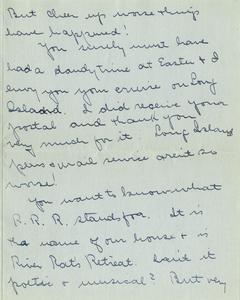 But cheer up worse things
have happened!
You surely must have
had a dandy time at Easter & I
envy you your cruise on Long
Island. I did receive your
postal and thank you
very much for it. Long Island
plus & mail service aren't so
worse!
You want to know what
R.R.R. stands for. It is
the name of our house & is
River Rats Retreat. Isn't it
poetic & musical? But very